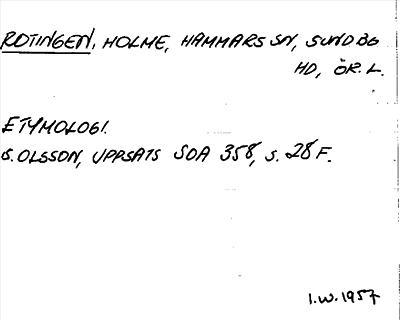 ROTINGEN, HOLME, HAMMARS SN, SUNDBO
HD, ÖR. L.
ETYMOLOGI.
B. OLSSON, UPPSATS SOA 358, S. 28 F.
I.W. 1957